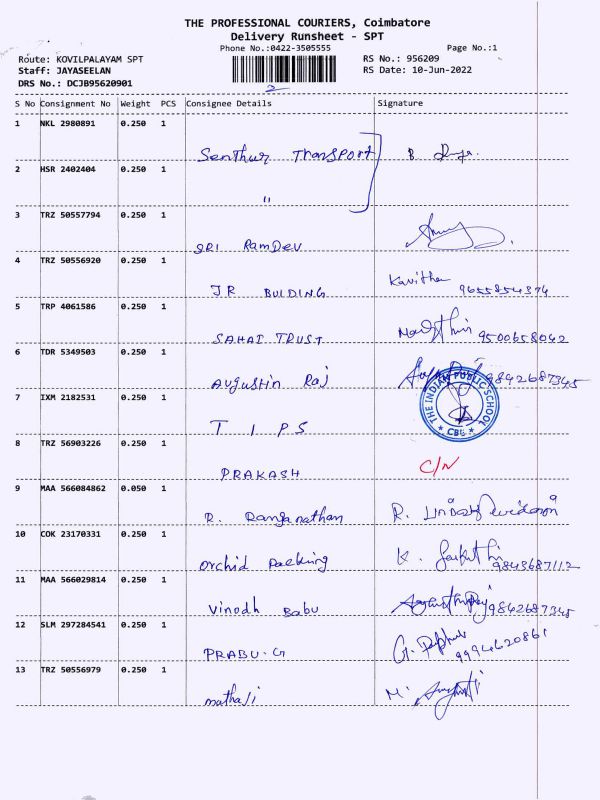 THE PROFESSIONAL COURIERS, Coimbatore
Delivery Runsheet - SPT
Phone No.:0422-3505555
Page No.:1
Route: KOVILPALAYAM SPT
RS No.: 956209
Staff: JAYASEELAN
RS Date: 10-Jun-2022
DRS No.: DCJB95620901
2
S No Consignment No Weight PCS Consignee Details Signature
1 NKL 2980891 0.250 1
Senthur Transport
2 HSR 2402404 0.250 1
"
3 TRZ 50557794 0.250 1
SRI RamDev
4 TRZ 50556920 0.250 1
JR BULDING Kavitha 9655854374
5 TRP 4061586 0.250 1
SAHAI TRUST 9500658042
6 TDR 5349503 0.250 1
Augustin Raj 9842687345
7 IXM 2182531 0.250 1
T I P S THE INDIAN PUBLIC SCHOOL CBE
8 TRZ 56903226 0.250 1
PRAKASH C/N
9 MAA 566084862 0.050 1
R. Ranganathan R.
10 COK 23170331 0.250 1
Orchid Packing K. 9843687112
11 MAA 566029814 0.250 1
Vinodh Babu 9842687345
12 SLM 297284541 0.250 1
PRABU.G G. 9994620861
13 TRZ 50556979 0.250 1
mathaji M.